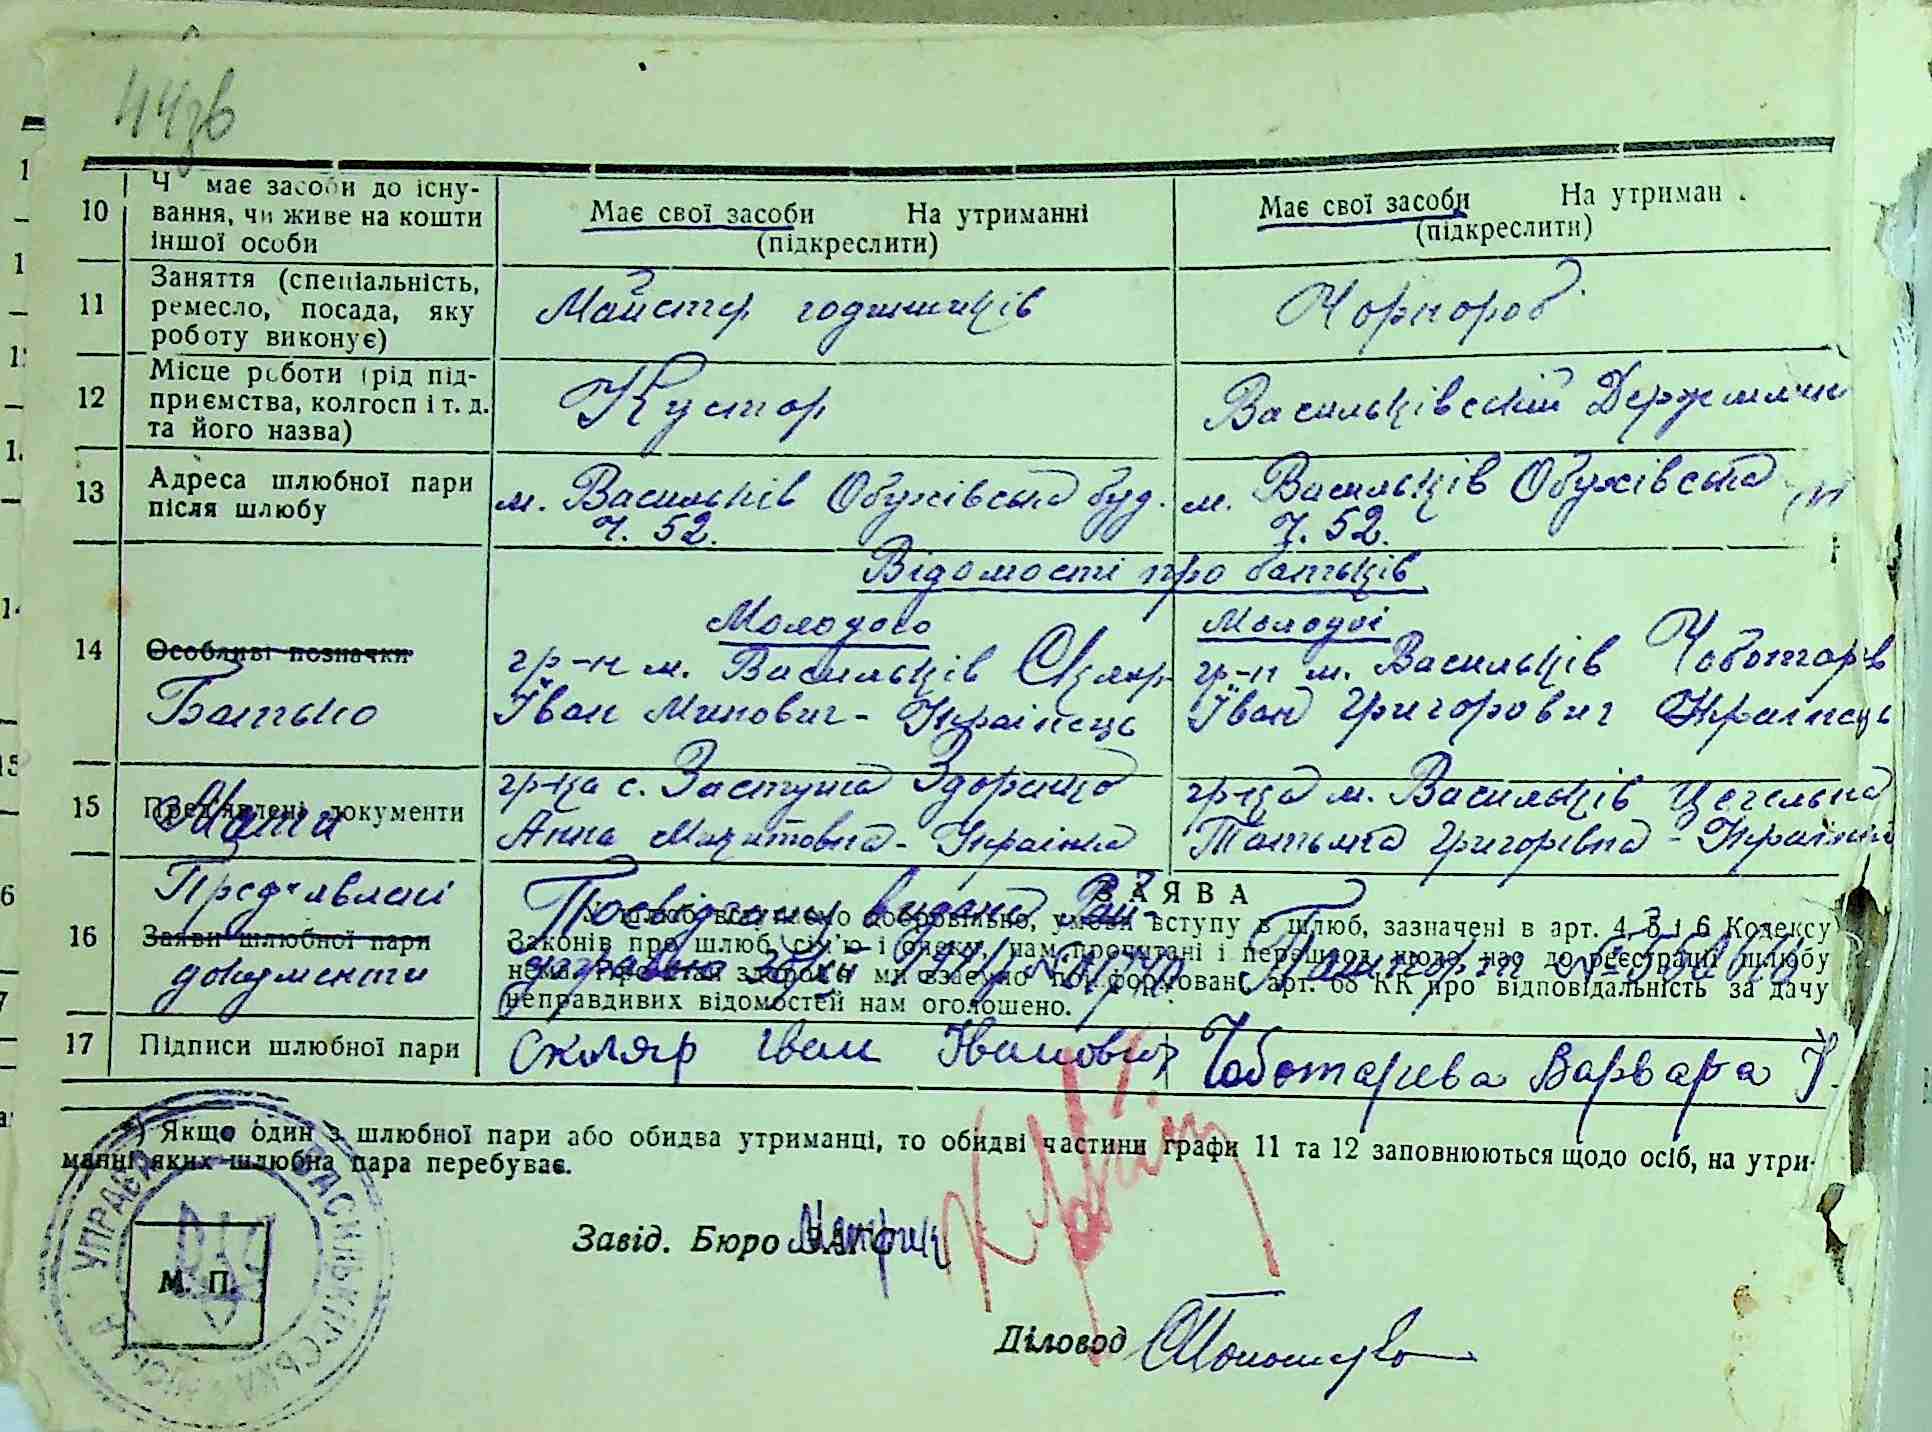 44зв
10 Ч має засоби до існу- Має свої засоби На утриманні Має свої засоби На утриман
вання, чи живе на кошти (підкреслити) (підкреслити)
іншої особи
11 Заняття (спеціальність, Майстер годинників Чорнороб
ремесло, посада, яку
роботу виконує)
12 Місце роботи (рід під- Кустар Васильківский
приємства, колгосп і т. д.
та його назва)
13 Адреса шлюбної пари м. Васильків Обухівська буд. м. Васильків Обухівська
після шлюбу ч. 52. ч. 52.
Відомості про батьків
Молодого Молодої
14 Особливі позначки гр-н м. Васильків Скляр гр-н м. Васильків Чоботарів
Батько Іван Минович - Українець Іван Григорович Українець
15 Пред'явлені документи гр-ка с. Застуга гр-ка м. Васильків Цегельна
Мати Анна Микитовна - Українка Татьяна Григорівна - Українка
Пред'явлені ЗАЯВА
У шлюб вступаємо добровільно, умови вступу в шлюб, зазначені в арт. 4, 5 і 6 Кодексу
16 Заяви шлюбної пари Законів про шлюб, сім'ю і опіку, нам прочитані і перешкод щодо нас до реєстрації шлюбу
документи нема. Про стан здоров'я ми взаємно поінформовані, арт. 68 КК про відповідальність за дачу
неправдивих відомостей нам оголошено.
Посвідка видана Рай-
Пашпорт №
17 Підписи шлюбної пари Скляр Іван Іванович Чоботарева Варвара І.
*) Якщо один з шлюбної пари або обидва утриманці, то обидві частини графи 11 та 12 заповнюються щодо осіб, на утри-
манні яких шлюбна пара перебуває.
УПРАВА ВАСИЛЬКІВСЬКА
М. П.
Завід. Бюро ЗАГС
Діловод